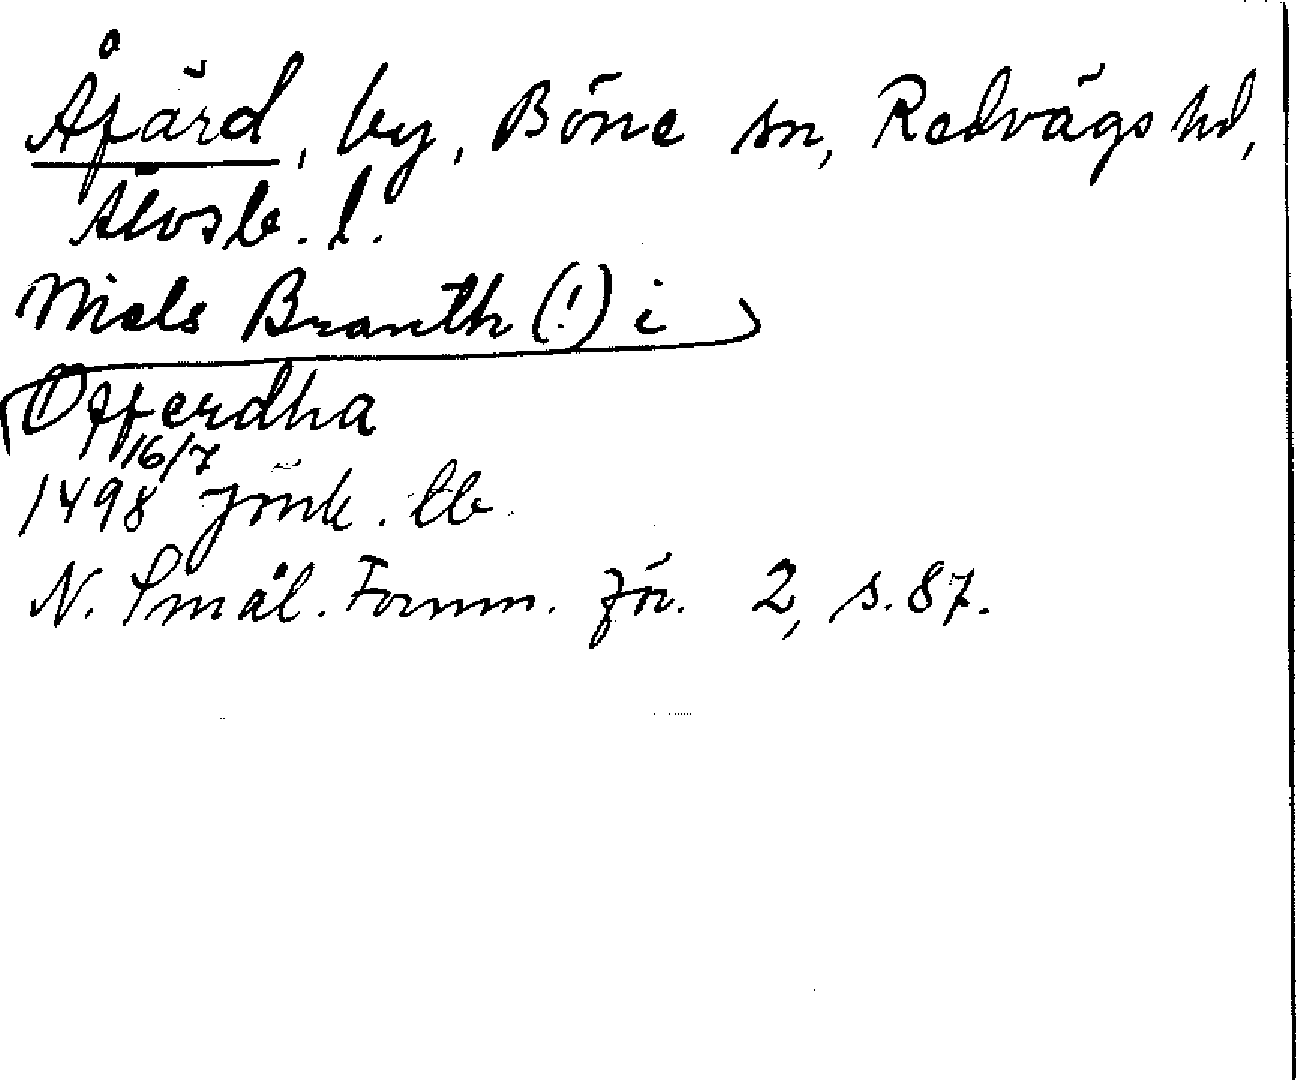 Åfärd, by, Böne sn, Redvägs hd,
Älvsb. l.
Niels Branth (!) i
Offerdha
16/7
1498 Jönk. tb.
N. Smål. Fornm. för. 2, s. 87.